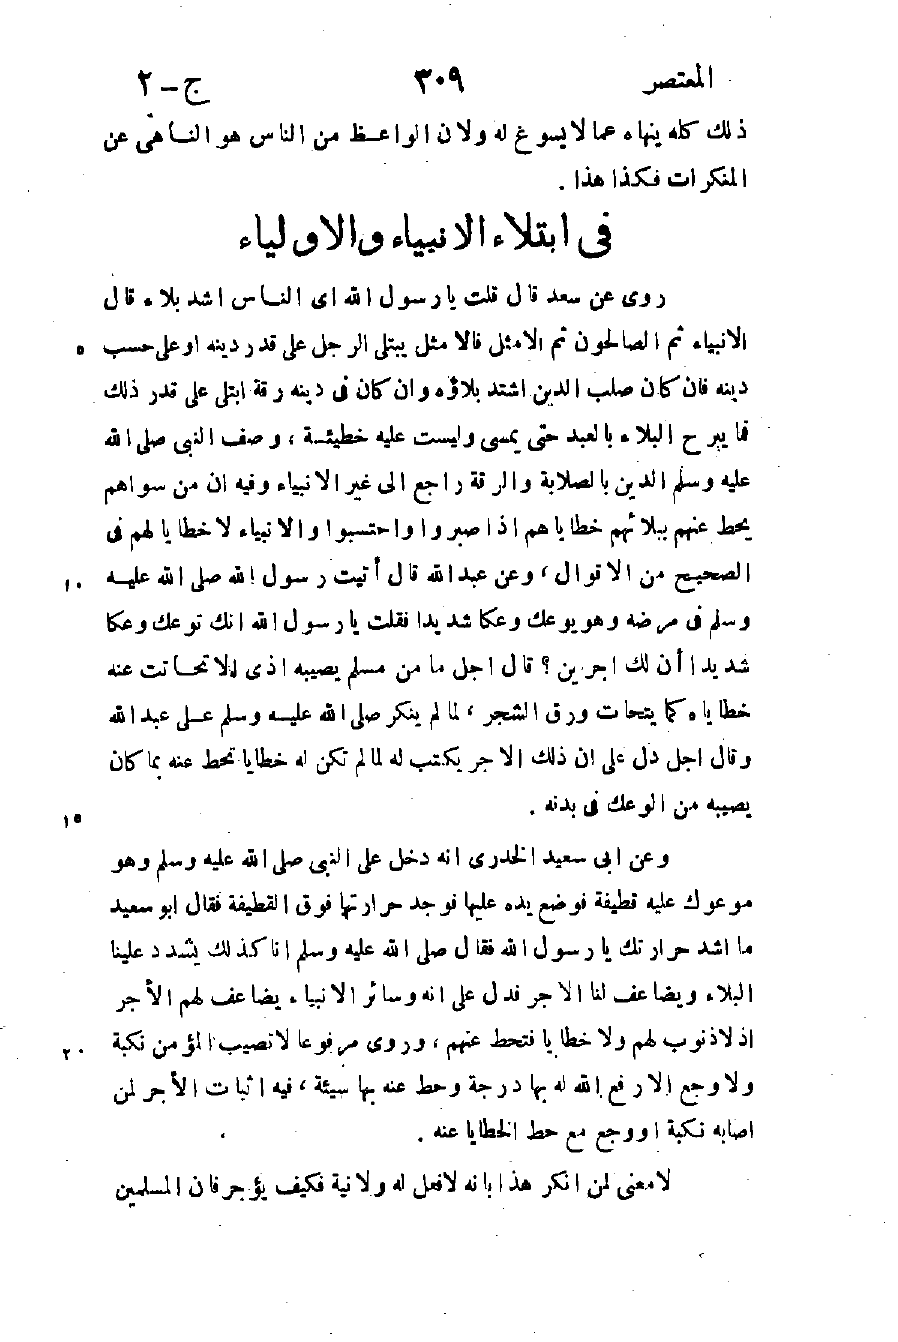 المعتصر ٣٠٩ ج-٢
ذلك كله ينهاه عما لا يسوغ له ولان الواعظ من الناس هو الناهى عن
المنكرات فكذا هذا .
فى ابتلاء الانبياء والاولياء
روى عن سعد قال قلت يا رسول الله اى الناس اشد بلاء قال
الانبياء ثم الصالحون ثم الامثل فالامثل يبتلى الرجل على قدر دينه او على حسب ٥
دينه فان كان صلب الدين اشتد بلاؤه وان كان فى دينه رقة ابتلى على قدر ذلك
فما يبرح البلاء بالعبد حتى يمسى وليست عليه خطيئة ، وصف النبى صلى الله
عليه وسلم الدين بالصلابة والرقة راجع الى غير الانبياء وفيه ان من سواهم
يحط عنهم ببلائهم خطاياهم اذا صبروا واحتسبوا والانبياء لا خطايا لهم فى
الصحيح من الاقوال ، وعن عبد الله قال أتيت رسول الله صلى الله عليه ١٠
وسلم فى مرضه وهو يوعك وعكا شديدا فقلت يا رسول الله انك توعك وعكا
شديدا أن لك اجرين ؟ قال اجل ما من مسلم يصيبه اذى الا تحاتت عنه
خطاياه كما يتحات ورق الشجر ، لما لم ينكر صلى الله عليه وسلم على عبد الله
وقال اجل دل على ان ذلك الاجر يكتب له لما لم تكن له خطايا تحط عنه بما كان
يصيبه من الوعك فى بدنه . ١٥
وعن ابى سعيد الخدرى انه دخل على النبى صلى الله عليه وسلم وهو
موعوك عليه قطيفة فوضع يده عليها فوجد حرارتها فوق القطيفة فقال ابو سعيد
ما اشد حرارتك يا رسول الله فقال صلى الله عليه وسلم إنا كذلك يشدد علينا
البلاء ويضاعف لنا الاجر فدل على انه وسائر الانبياء يضاعف لهم الأجر
اذ لا ذنوب لهم ولا خطايا فتحط عنهم ، وروى مرفوعا لا تصيب المؤمن نكبة ٢٠
ولا وجع إلا رفع الله له بها درجة وحط عنه بها سيئة ، فيه اثبات الأجر لمن
اصابه نكبة او وجع مع حط الخطايا عنه .
لا معنى لمن انكر هذا بانه لا فعل له ولا نية فكيف يؤجر فان المسلمين